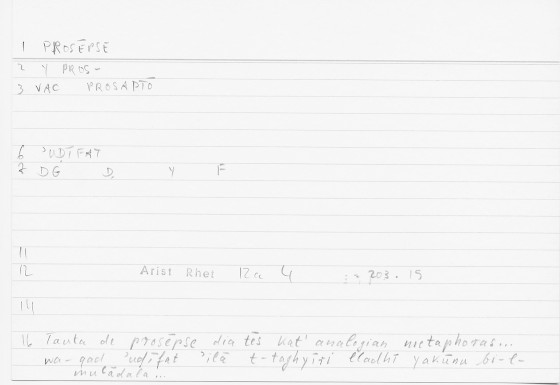 1 PROSĒPSE
2 Y PROS-
3 VAC PROSAPTŌ
6 ʾUḌĪFAT
8 DG Ḍ Y F
11
12 Arist Rhet 12a 4 203.15
14
16 Tauta de prosēpse dia tēs kat' analogian metaphoras...
wa-qad ʾuḍīfat ʾilā t-taghyīri lladhī yakūnu bi-l-
muʿādala...